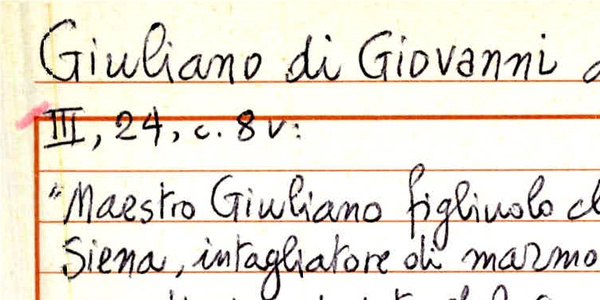 Giuliano di Giovanni
III, 24, c. 8 v:
"Maestro Giuliano figliuolo
Siena, intagliatore di marmo